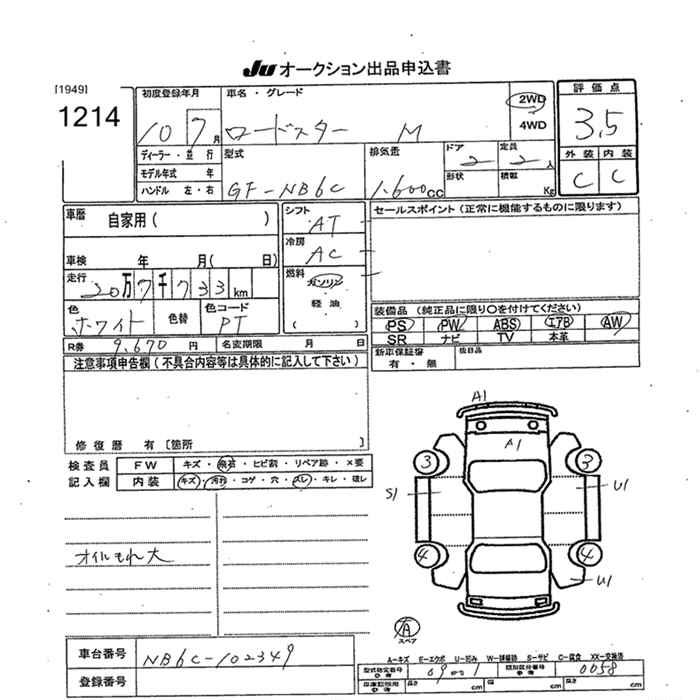 JU オークション出品申込書
[1949]
1214
初度登録年月 車名・グレード 2WD 評価点
10 7月 ロードスター M 4WD 3.5
ディーラー・並行 型式 排気量 ドア 定員
モデル年式 年 2 2人 外装 内装
ハンドル 左・右 GF-NB6C 1.600CC 形状 積載 Kg C C
車歴 自家用( ) シフト AT セールスポイント(正常に機能するものに限ります)
冷房 AC
車検 年 月( 日)
走行 20万7千733km 燃料 ガソリン
軽油
( )
色 ホワイト 色替 色コード PT 装備品(純正品に限り○を付けてください)
PS PW ABS エアB AW
SR ナビ TV 本革
R券 9,670円 名変期限 月 日 新車保証書 後日品
有・無
注意事項申告欄(不具合内容等は具体的に記入して下さい)
修復歴 有[箇所 ]
検査員 FW キズ・飛石・ヒビ割・リペア跡・×要
記入欄 内装 キズ・汚れ・コゲ・穴・スレ・キレ・破レ
A1
A1
3 3
S1 U1
4 4
U1
オイルもれ大
A
スペア
A-キズ E-エクボ U-凹み W-補修跡 S-サビ C-腐食 XX-交換済
車台番号 NB6C-102349
型式指定番号 参考 類別区分番号 参考 0058
登録番号
長さ cm 幅 cm 高さ cm